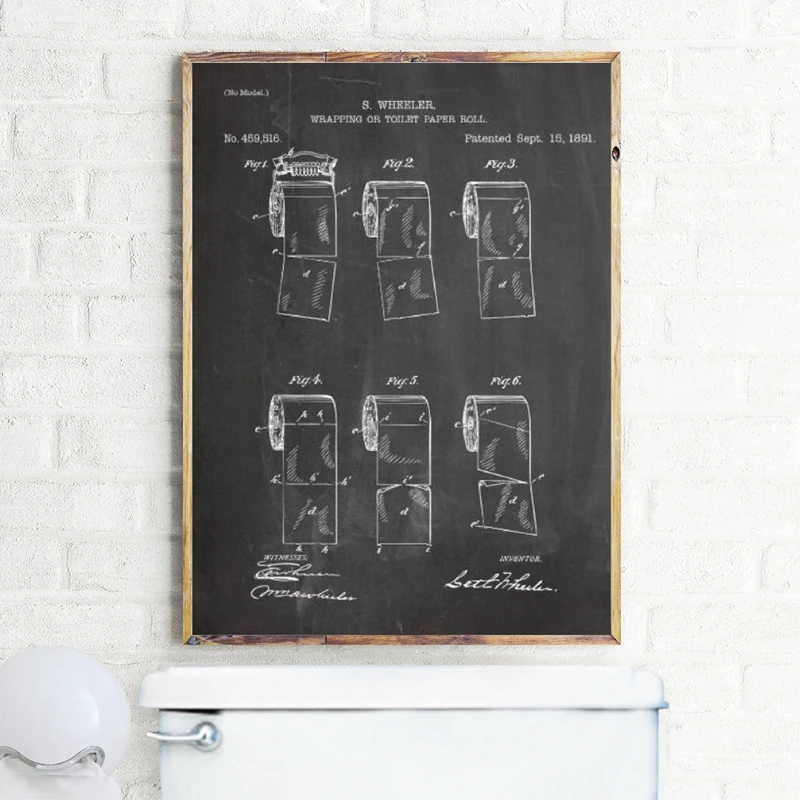 (No Model.)
S. WHEELER.
WRAPPING OR TOILET PAPER ROLL.
No. 459,516. Patented Sept. 15, 1891.
Fig. 1. Fig. 2. Fig. 3.
Fig. 4. Fig. 5. Fig. 6.
WITNESSES: INVENTOR.
Seth Wheeler.